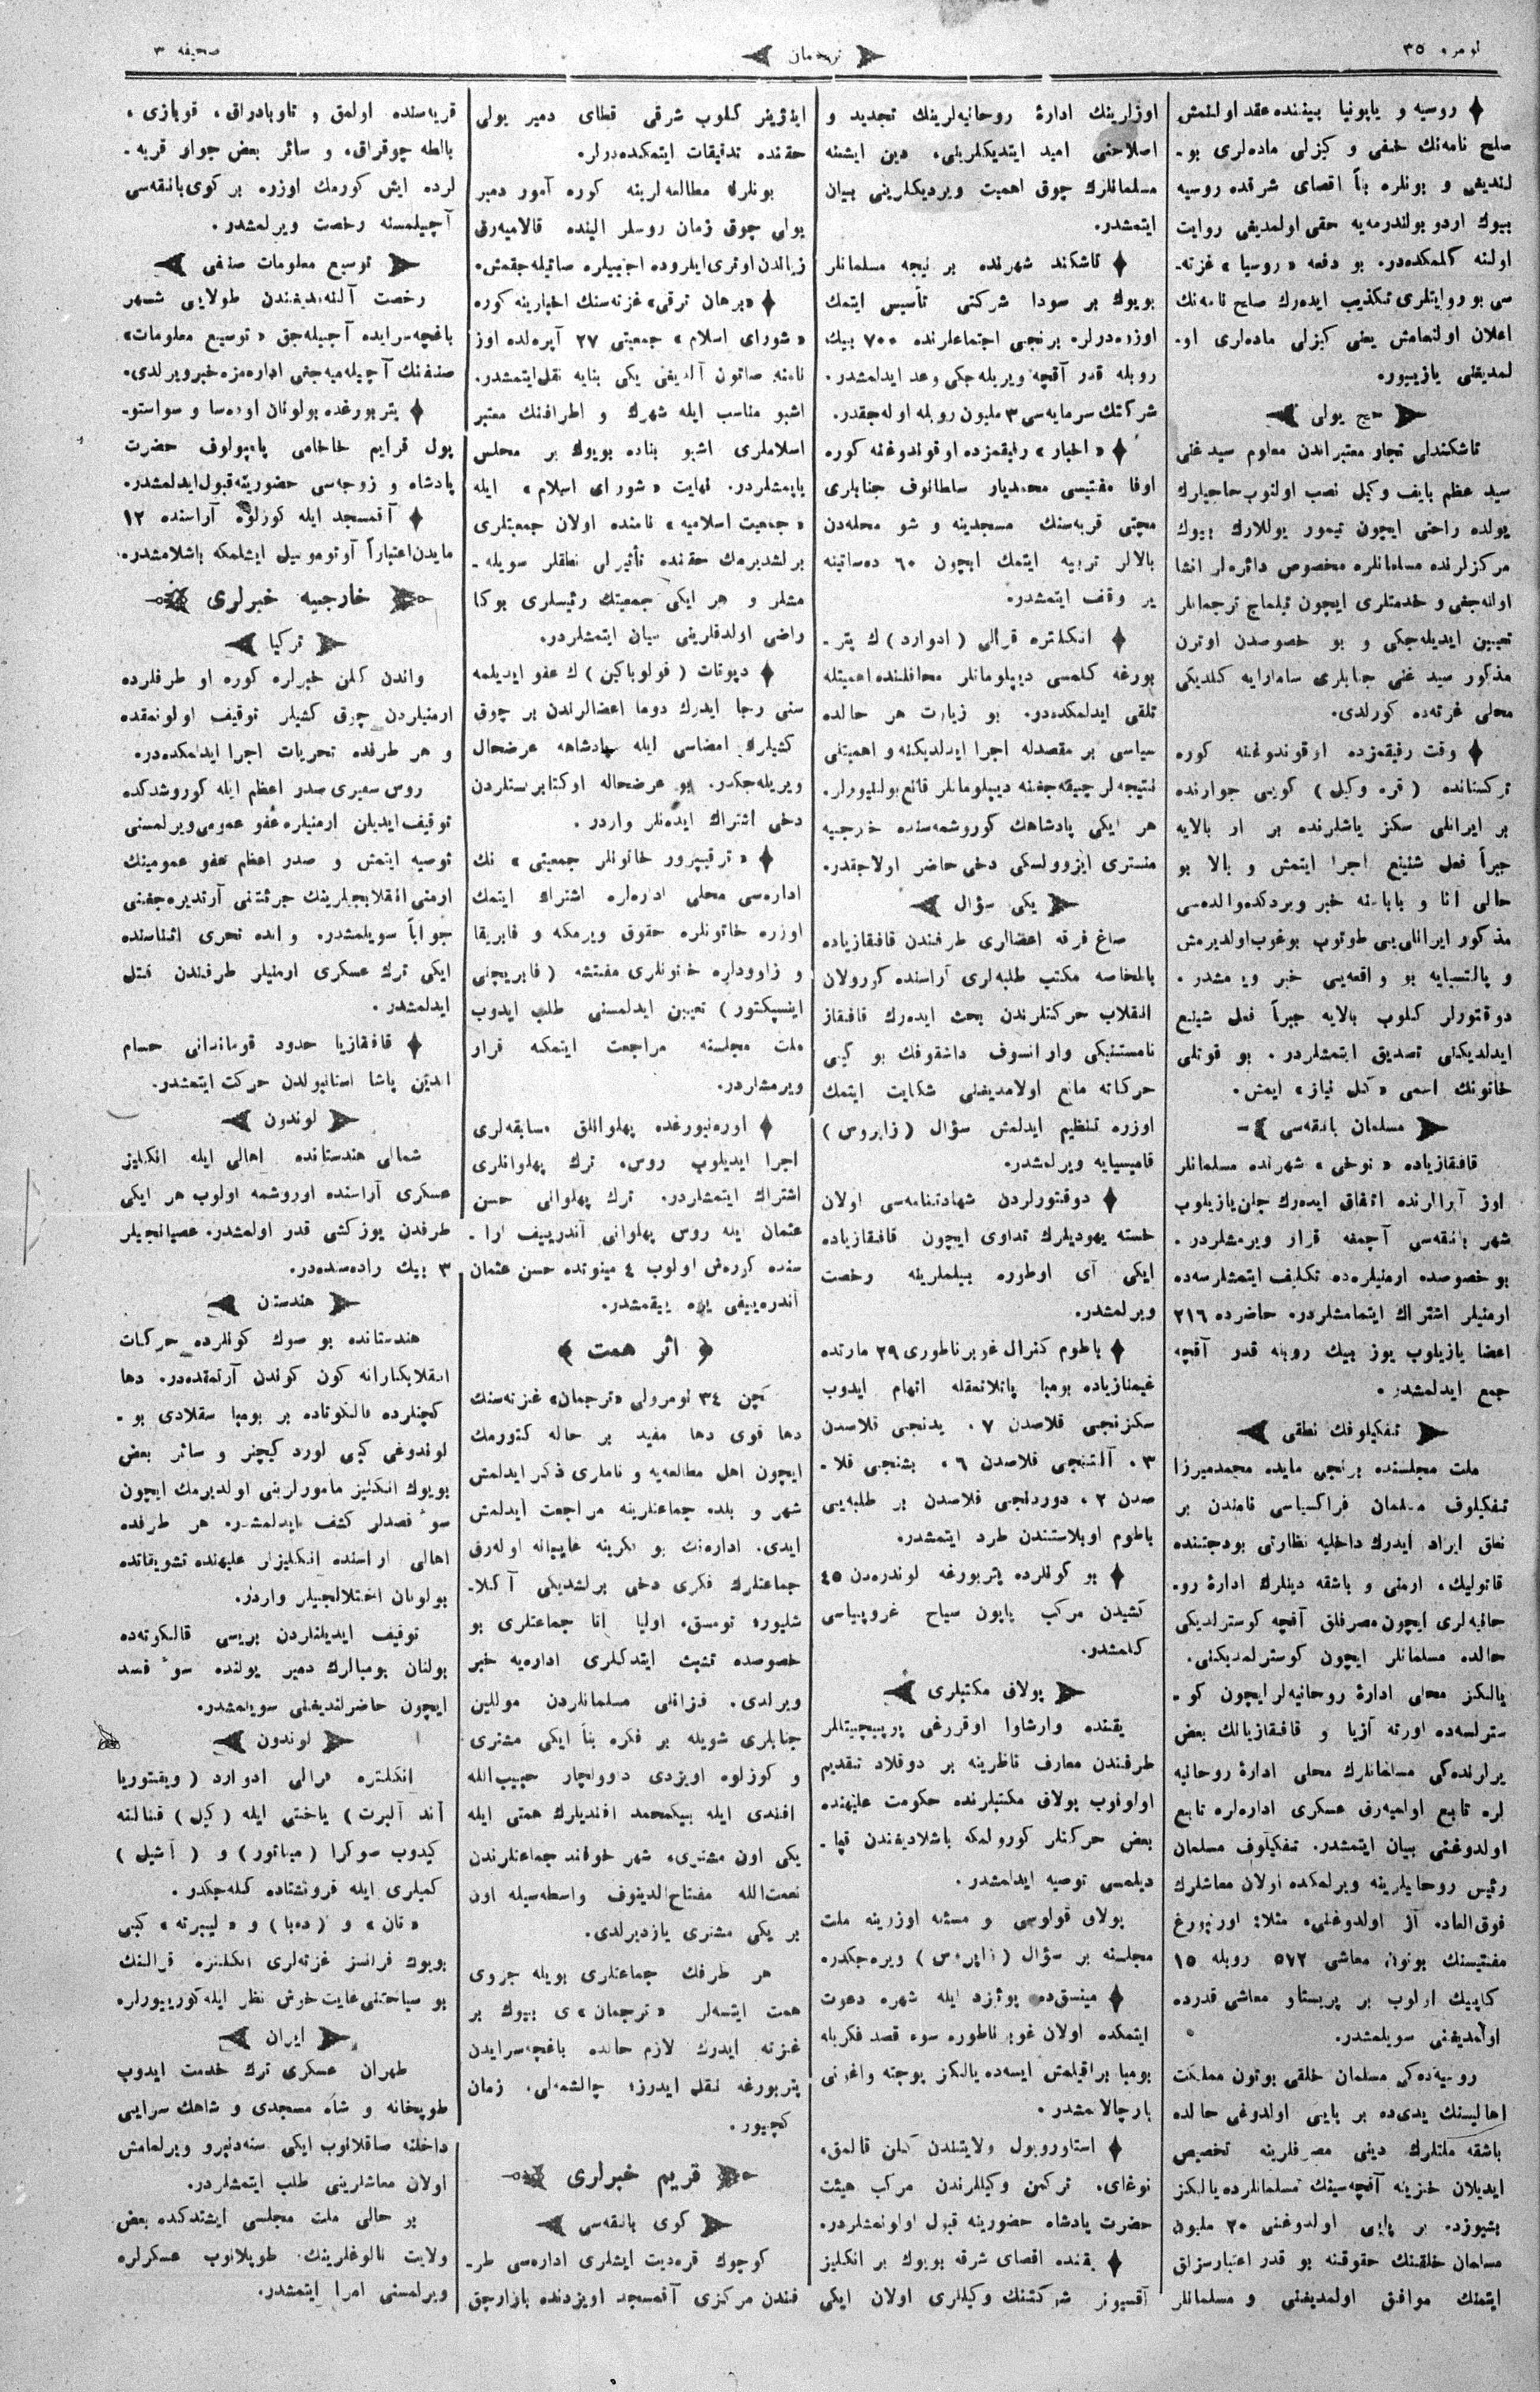 نومرو ٣٥
ترجمان
صحیفه ٣
روسیه و یاپونیا بیننده عقد اولنمش
صلح نامه‌نك خفی و كیزلی ماده‌لری بو-
لندیغی و بونلره بناً اقصای شرقده روسیه
بیوك اردو بولندرمه‌یه حقی اولمدیغی روایت
اولنه كلمكده‌در. بو دفعه «روسیا» غزته-
سی بو روایتلری تكذیب ایده‌رك صلح نامه‌نك
اعلان اولنمامش یعنی كیزلی ماده‌لری او-
لمدیغنی یازییور.
حج یولی
تاشكندلی تجار معتبراندن معلوم سید غنی
سید عظم بایف وكیل نصب اولنوب حاجیلرك
یولده راحتی ایچون تیمور یوللارك بیوك
مركزلرنده مسلمانلره مخصوص دائره‌لر انشا
اولنه‌جغی و خدمتلری ایچون تیلماچ ترجمانلر
تعیین ایدیله‌جكی و بو خصوصدن اوترن
مذكور سید غنی جنابلری سامارایه كلدیكی
محلی غزته‌ده كورلدی.
وقت رفیقمزده اوقوندوغنه كوره
تركستانده (قره وكیل) كویی جوارنده
بر ایرانلی سكز یاشلرنده بر ار بالایه
جبراً فعل شنیع اجرا ایتمش و بالا بو
حالی آنا و باباسنه خبر ویردكده والده‌سی
مذكور ایرانلی‌یی طوتوب بوغوب اولدیرمش
و پالتسیایه بو واقعه‌یی خبر ویرمشدر.
دوقتورلر كلوب بالایه جبراً فعل شنیع
ایدلدیكنی تصدیق ایتمشلردر. بو قوتلی
خاتونك اسمی «كل نیاز» ایمش.
مسلمان بانقه‌سی
قافقازیاده «نوخی» شهرنده مسلمانلر
اوز آرالرنده اتفاق ایده‌رك چلن یازیلوب
شهر بانقه‌سی آچمغه قرار ویرمشلردر.
بو خصوصده ارمنیلره‌ده تكلیف ایتمشلرسه‌ده
ارمنیلر اشتراك ایتمامشلردر. حاضرده ٢١٦
اعضا یازیلوب یوز بیك روبله قدر آقچه
جمع ایدلمشدر.
تفكیلوفك نطقی
ملت مجلسنده برنجی مایده محمدمیرزا
تفكیلوف مسلمان فراكسیاسی نامندن بر
نطق ایراد ایدرك داخلیه نظارتی بودجتنده
قاتولیك، ارمنی و باشقه دینلرك ادارهٔ رو-
حانیه‌لری ایچون مصرفلق آقچه كوسترلدیكی
حالده مسلمانلر ایچون كوسترلمدیكنی.
یالكز محلی ادارهٔ روحانیه‌لر ایچون كو-
سترلسه‌ده اورته آزیا و قافقازیانك بعض
یرلرنده‌كی مسلمانلرك محلی ادارهٔ روحانیه
لره تابع اولمیه‌رق عسكری اداره‌لره تابع
اولدوغنی بیان ایتمشدر. تفكیلوف مسلمان
رئیس روحانیلرینه ویرلمكده اولان معاشلرك
فوق‌العاده آز اولدوغنی، مثلا: اورنبورغ
مفتیسنك بوتون معاشی ٥٧٢ روبله ١٥
كاپیك اولوب بر پریستاو معاشی قدرده
اولمدیغنی سویلمشدر.
روسیه‌ده‌كی مسلمان خلقی بوتون مملكت
اهالیسنك یدی‌ده بر پایی اولدوغی حالده
باشقه ملتلرك دینی مصرفلرینه تخصیص
ایدیلان خزینه آقچه‌سینك مسلمانلرده یالكز
بشیوزده بر پایی اولدوغنی ٢٠ ملیون
مسلمان خلقنك حقوقنه بو قدر اعتبارسزلق
ایتمنك موافق اولمدیغنی و مسلمانلر
اوزلرینك ادارهٔ روحانیه‌لرینك تجدید و
اصلاحنی امید ایتدیكلرینی، دین ایشنه
مسلمانلرك چوق اهمیت ویردیكلرینی بیان
ایتمشدر.
تاشكند شهرنده بر نیچه مسلمانلر
بویوك بر سودا شركتی تأسیس ایتمك
اوزره‌درلر. برنجی اجتماعلرنده ٧٠٠ بیك
روبله قدر آقچه ویریله‌جكی وعد ایدلمشدر.
شركتك سرمایه‌سی ٣ ملیون روبله اوله‌جقدر.
«اخبار» رفیقمزده اوقوندوغنه كوره
اوفا مفتیسی محمدیار سلطانوف جنابلری
مچتی قریه‌سنك مسجدینه و شو محله‌دن
بالالر تربیه ایتمك ایچون ٦٠ ده‌ساتینه
یر وقف ایتمشدر.
انكلتره قرالی (ادوارد)ك پتر-
بورغه كلمسی دیپلومانلر محافلنده اهمیتله
تلقی ایدلمكده‌در. بو زیارت هر حالده
سیاسی بر مقصدله اجرا ایدلدیكنه و اهمیتلی
نتیجه‌لر چیقه‌جغنه دیپلومانلر قانع بولنیورلر.
هر ایكی پادشاهك كوروشمه‌سنده خارجیه
منستری ایزوولسكی دخی حاضر اولاجقدر.
یكی سؤال
صاغ فرقه اعضالری طرفندن قافقازیاده
بالخاصه مكتب طلبه‌لری آراسنده كورولان
انقلاب حركتلرندن بحث ایده‌رك قافقاز
نامستنیكی وارانسوف داشقوفك بو كبی
حركاته مانع اولامدیغنی شكایت ایتمك
اوزره تنظیم ایدلمش سؤال (زاپروس)
قامیسیایه ویرلمشدر.
دوقتورلردن شهادتنامه‌سی اولان
خسته یهودیلرك تداوی ایچون قافقازیاده
ایكی آی اوطوره بیلملرینه رخصت
ویرلمشدر.
باطوم كنرال غوبرناطوری ٢٩ مارتده
غیمنازیاده بومبا پاتلاتمقله اتهام ایدوب
سكزنجی قلاصدن ٧، یدنجی قلاصدن
٣، آلتنجی قلاصدن ٦، بشنجی قلا-
صدن ٢، دوردنجی قلاصدن بر طلبه‌یی
باطوم اوبلاستندن طرد ایتمشدر.
بو كونلرده پتربورغه لوندره‌دن ٤٥
كشیدن مركب یاپون سیاح غروپپاسی
كلمشدر.
پولاق مكتبلری
یقنده وارشاوا اوقروغی پرپیچیتللر
طرفندن معارف ناظرینه بر دوقلاد تقدیم
اولونوب پولاق مكتبلرنده حكومت علیهنده
بعض حركتلر كورولمكه باشلادیغندن قپا-
دیلمسی توصیه ایدلمشدر.
پولاق قولوسی و مسئله اوزرینه ملت
مجلسنه بر سؤال (زاپروس) ویره‌جكدر.
مینسق‌ده پوئیزد ایله شهره دعوت
ایتمكده اولان غوبرناطوره سوء قصد فكریله
بومبا براقیلمش ایسه‌ده یالكز پوچته واغونی
پارچالانمشدر.
استاوروپول ولایتندن كلن قالمق،
نوغای، تركمن وكیللرندن مركب هیئت
حضرت پادشاه حضورینه قبول اولونمشلردر.
یقنده اقصای شرقه بویوك بر انكلیز
آقسیونر شركتنك وكیللری اولان ایكی
اینژینر كلوب شرقی قطای دمیر یولی
حقنده تدقیقات ایتمكده‌درلر.
بونلرك مطالعه‌لرینه كوره آمور دمیر
یولی چوق زمان روسلر الینده قالامیه‌رق
زیاندن اوتری ایلروده اجنبیلره صاتیله‌جقمش.
«برهان ترقی» غزته‌سنك اخبارینه كوره
«شورای اسلام» جمعیتی ٢٧ آپره‌لده اوز
نامنه صاتون آلدیغی یكی بنایه نقل ایتمشدر.
اشبو مناسب ایله شهرك و اطرافنك معتبر
اسلاملری اشبو بناده بویوك بر مجلس
یاپمشلردر. نهایت «شورای اسلام» ایله
«جمعیت اسلامیه» نامنده اولان جمعیتلری
برلشدیرمك حقنده تأثیرلی نطقلر سویله-
مشلر و هر ایكی جمعیتك رئیسلری بوكا
راضی اولدقلرینی بیان ایتمشلردر.
دپوتات (قولوباكین)ك عفو ایدیلمه
سنی رجا ایدرك دوما اعضالرندن بر چوق
كشیلرك امضاسی ایله پادشاهه عرضحال
ویریله‌جكدر. بو عرضحاله اوكتابرستلردن
دخی اشتراك ایدنلر واردر.
«ترقیپرور خاتونلر جمعیتی» نك
اداره‌سی محلی اداره‌لره اشتراك ایتمك
اوزره خاتونلره حقوق ویرمكه و فابریقا
و زاوودلره خاتونلری مفتشه (فابریچنی
اینسپكتور) تعیین ایدلمسنی طلب ایدوب
ملت مجلسنه مراجعت ایتمكه قرار
ویرمشلردر.
اوره‌نبورغده پهلوانلق مسابقه‌لری
اجرا ایدیلوب روس، ترك پهلوانلری
اشتراك ایتمشلردر. ترك پهلوانی حسن
عثمان ایله روس پهلوانی آندریيف آرا-
سنده كوره‌ش اولوب ٤ مینوتده حسن عثمان
آندره‌ییفی یره ییقمشدر.
اثر همت
كچن ٣٤ نومرولی «ترجمان» غزته‌سنك
دها قوی دها مفید بر حاله كتورمك
ایچون اهل مطالعه‌یه و ناملری ذكر ایدلمش
شهر و بلده جماعتلرینه مراجعت ایدلمش
ایدی. اداره‌نك بو فكرینه غایبانه اوله‌رق
جماعتلرك فكری دخی برلشدیكی آكلا-
شلیور؛ تومسق، اولیا آتا جماعتلری بو
خصوصده تشبث ایتدكلری اداره‌یه خبر
ویرلدی. قزانلی مسلمانلردن موللین
جنابلری شویله بر فكره بناً ایكی مشتری
و كوزلوه اویزدی داوولچار حبیب‌الله
افندی ایله بیكمحمد افندیلرك همتی ایله
یكی اون مشتری، شهر خوقند جماعتلرندن
نعمت‌الله مفتاح‌الدینوف واسطه‌سیله اون
بر یكی مشتری یازدیرلدی.
هر طرفك جماعتلری بویله جزوی
همت ایتسه‌لر «ترجمان»ی بیوك بر
غزته ایدرك لازم حالده باغچه‌سرایدن
پتربورغه نقل ایدرز؛ چالشمه‌لی، زمان
كچیور.
قریم خبرلری
كوی بانقه‌سی
كوچوك قره‌دیت ایشلری اداره‌سی طر-
فندن مركزی آقمسجد اویزدنده بازارچق
قریه‌سنده اولمق و تاوبادراق، قوبازی،
بالطه چوقراق، و سائر بعض جوار قریه-
لرده ایش كورمك اوزره بر كوی بانقه‌سی
آچیلمسنه رخصت ویرلمشدر.
توسیع معلومات صنفی
رخصت آلنه‌مدیغندن طولایی شهر
باغچه‌سرایده آچیله‌جق «توسیع معلومات»
صنفنك آچیله‌میه‌جغی اداره‌مزه خبر ویرلدی.
پتربورغده بولونان اوده‌سا و سواستو-
پول قرایم خاخامی پامپولوف حضرت
پادشاه و زوجه‌سی حضورینه قبول ایدلمشدر.
آقمسجد ایله كوزلوه آراسنده ١٢
مایدن اعتباراً آوتوموبیل ایشلمكه باشلامشدر.
خارجیه خبرلری
تركیا
واندن كلن خبرلره كوره او طرفلرده
ارمنیلردن چوق كشیلر توقیف اولونمقده
و هر طرفده تحریات اجرا ایدلمكده‌در.
روس سفیری صدر اعظم ایله كوروشدكده
توقیف ایدیلن ارمنیلره عفو عمومی ویرلمسنی
توصیه ایتمش و صدر اعظم عفو عمومینك
ارمنی انقلابجیلرینك جرئتنی آرتدیره‌جغنی
جواباً سویلمشدر. وانده تحری اثناسنده
ایكی ترك عسكری ارمنیلر طرفندن قتل
ایدلمشدر.
قافقازیا حدود قوماندانی حسام
الدین پاشا استانبولدن حركت ایتمشدر.
لوندون
شمالی هندستانده اهالی ایله انكلیز
عسكری آراسنده اوروشمه اولوب هر ایكی
طرفدن یوز كشی قدر اولمشدر. عصیانجیلر
٣ بیك راده‌سنده‌در.
هندستان
هندستانده بو صوك كونلرده حركات
انقلابكارانه كون كوندن آرتمقده‌در. دها
كچنلرده قالكوتاده بر بومبا سقلادی بو-
لوندوغی كبی لورد كیچنر و سائر بعض
بویوك انكلیز مأمورلرینی اولدیرمك ایچون
سوء قصدلر كشف ایدلمشدر. هر طرفده
اهالی آراسنده انكلیزلر علیهنده تشویقاتده
بولونان اختلالجیلر واردر.
توقیف ایدیلنلردن بریسی قالكوته‌ده
بولنان بومبالرك دمیر یولنده سوء قصد
ایچون حاضرلندیغنی سویلمشدر.
لوندون
انكلتره قرالی ادوارد (ویقتوریا
آند آلبرت) یاختی ایله (كیل) قنالنه
كیدوب صوكرا (میناتور) و (آشیل)
كمیلری ایله قرونشتاده كله‌جكدر.
«تان» و (ده‌با) و «لیبرته» كبی
بویوك فرانسز غزته‌لری انكلتره قرالنك
بو سیاحتنی غایت خوش نظر ایله كورییورلر.
ایران
طهران عسكری ترك خدمت ایدوب
طوپخانه و شاه مسجدی و شاهك سرایی
داخلنه صاقلانوب ایكی سنه‌دنبرو ویرلمامش
اولان معاشلرینی طلب ایتمشلردر.
بر حالی ملت مجلسی ایشتدكده بعض
ولایت نالوغلرینك طوپلانوب عسكرلره
ویرلمسنی امرا ایتمشدر.